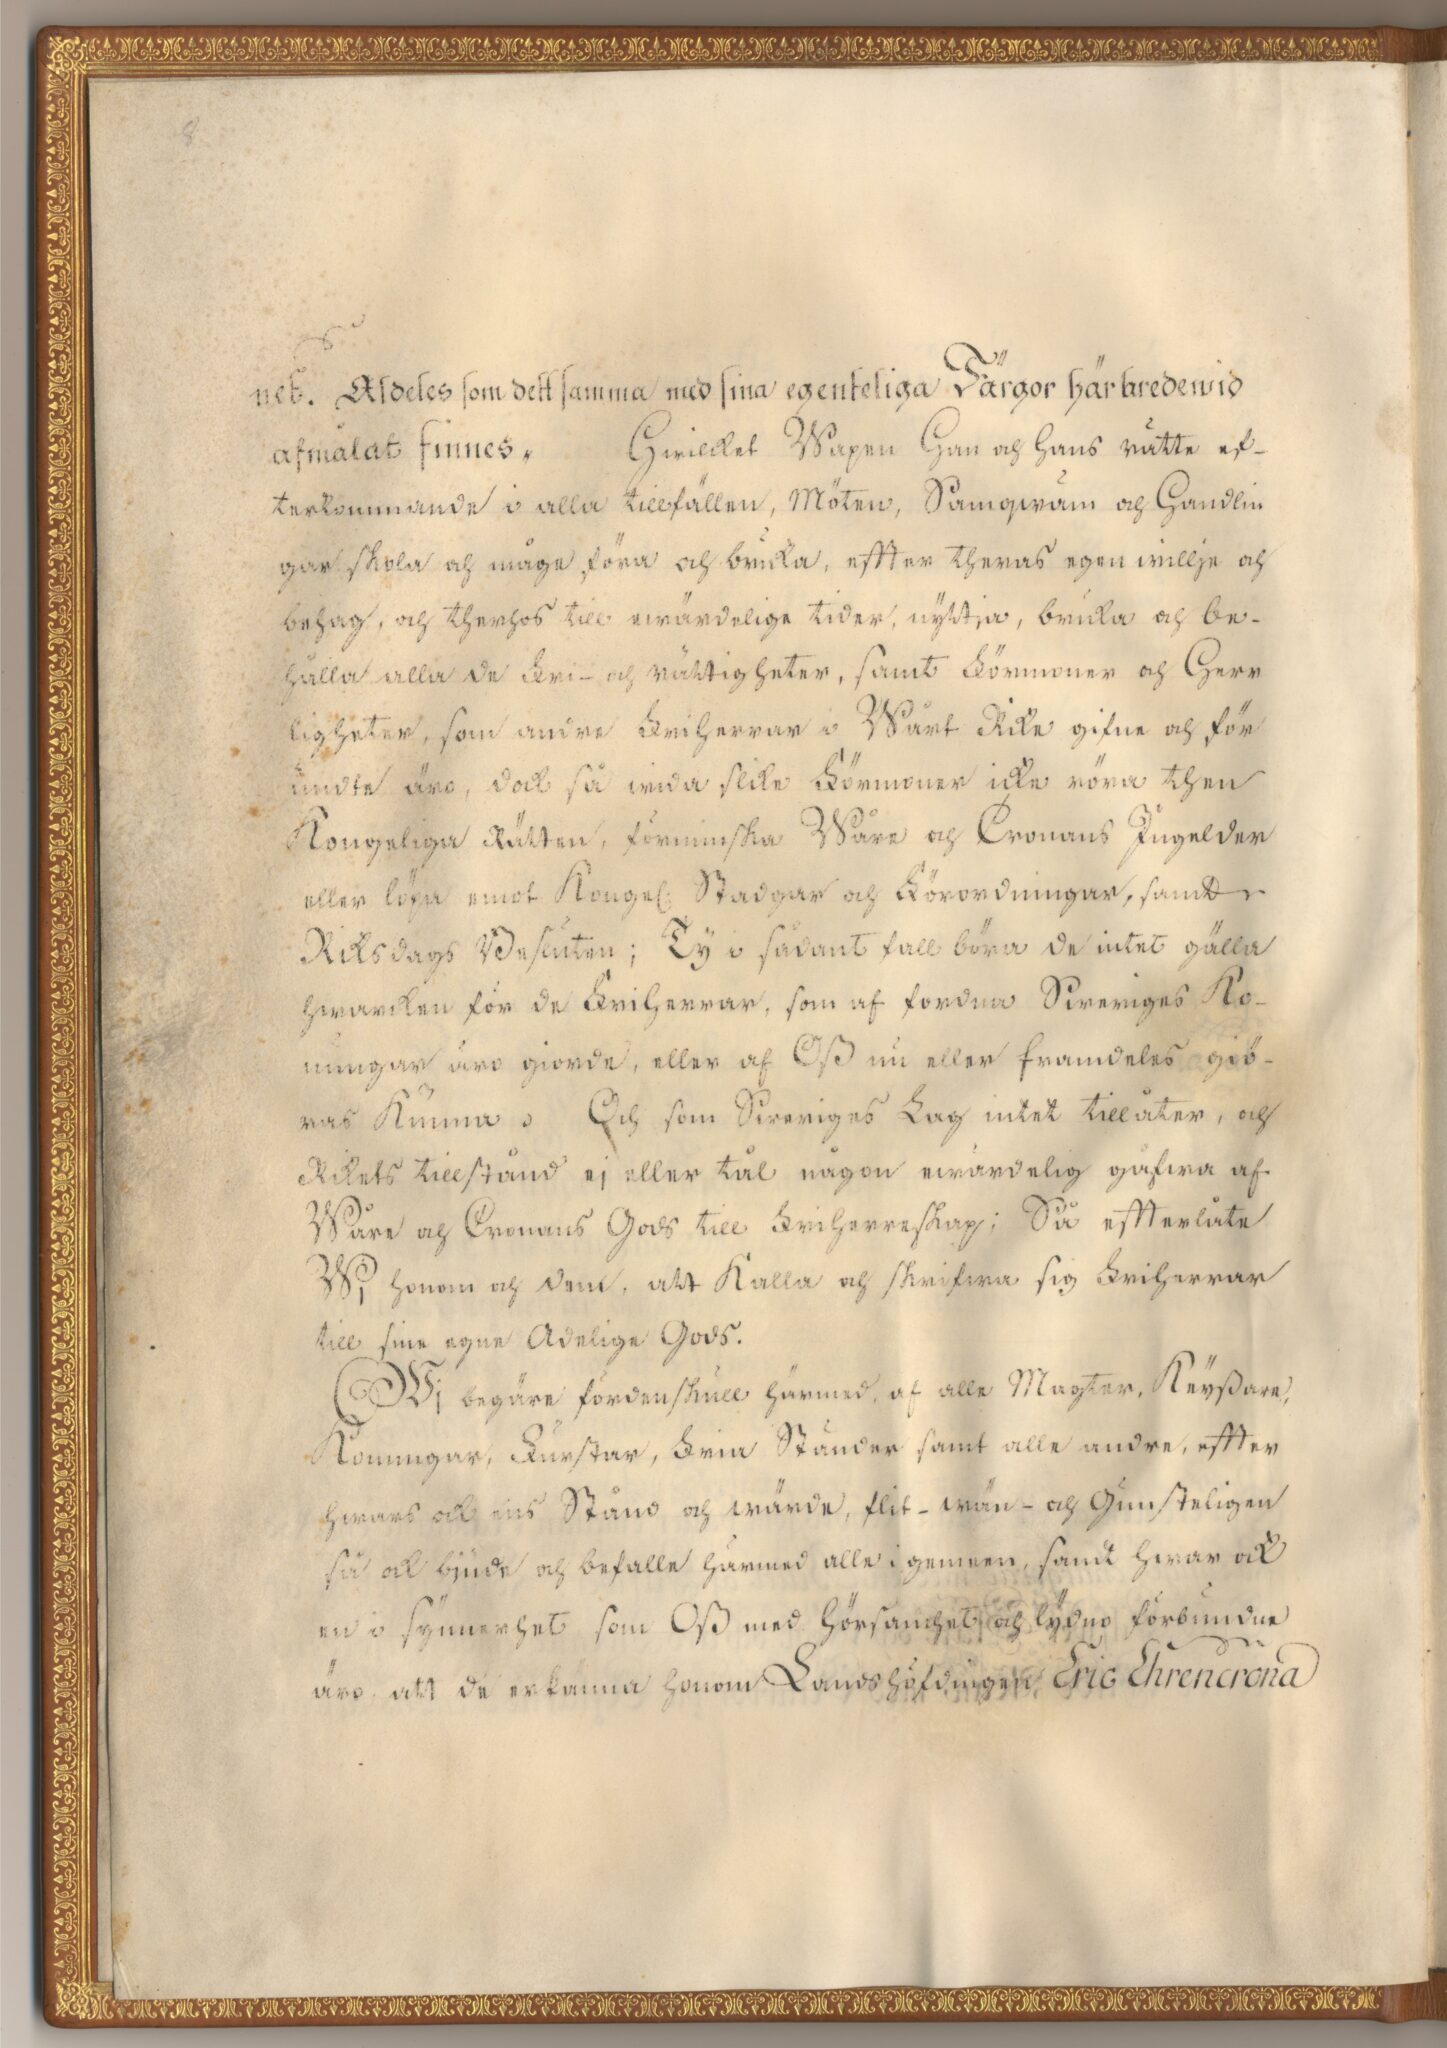 8
net. Aldeles som dett samma med sina egenteliga Färgor här bredewid
afmålat finnes. Hwilcket Wapen Han och hans rätte ef-
terkommande i alla tillfällen, Möten, Samqwäm och Handlin
gar skola och måge föra och bruka, effter theras egen willje och
behag, och therhos till ewärdelige tider, nyttja, bruka och be-
hålla alla de Fri- och rättigheter, samt Förmoner och Herr
ligheter, som andre Friherrar i Wårt Rike gifne och för
undte äro, dock så wida slike Förmoner icke röra then
Kongeliga Rätten, förminska Wåre och Cronans Ingelder
eller löpa emot Kongel: Stadgar och Förordningar, samt
Riksdags Besluten; Ty i sådant fall böra de intet gälla
hwarcken för de Friherrar, som af fordna Sweriges Ko-
nungar äro giorde, eller af Oß nu eller framdeles giö-
ras Kunna. Och som Sweriges Lag intet tillåter, och
Rikets tillstånd ej eller tål någon ewärdelig gåfwa af
Wåre och Cronans Gods till Friherreskap; Så effterlåte
Wj honom och dem, att Kalla och skrifwa sig Friherrar
till sine egne Adelige Gods.
Wj begäre fördenskull härmed, af alle Magter, Keyßare,
Konungar, Furstar, Fria Ständer samt alle andre, effter
hwars och ens Stånd och wärde, flit- wän- och Gunsteligen
så ock biude och befalle härmed alle i gemeen, samt hwar och
en i synnerhet som Oß med hörsamhet och lydno förbundne
äro, att de erkänna honom Landshöfdingen Eric Ehrencrona